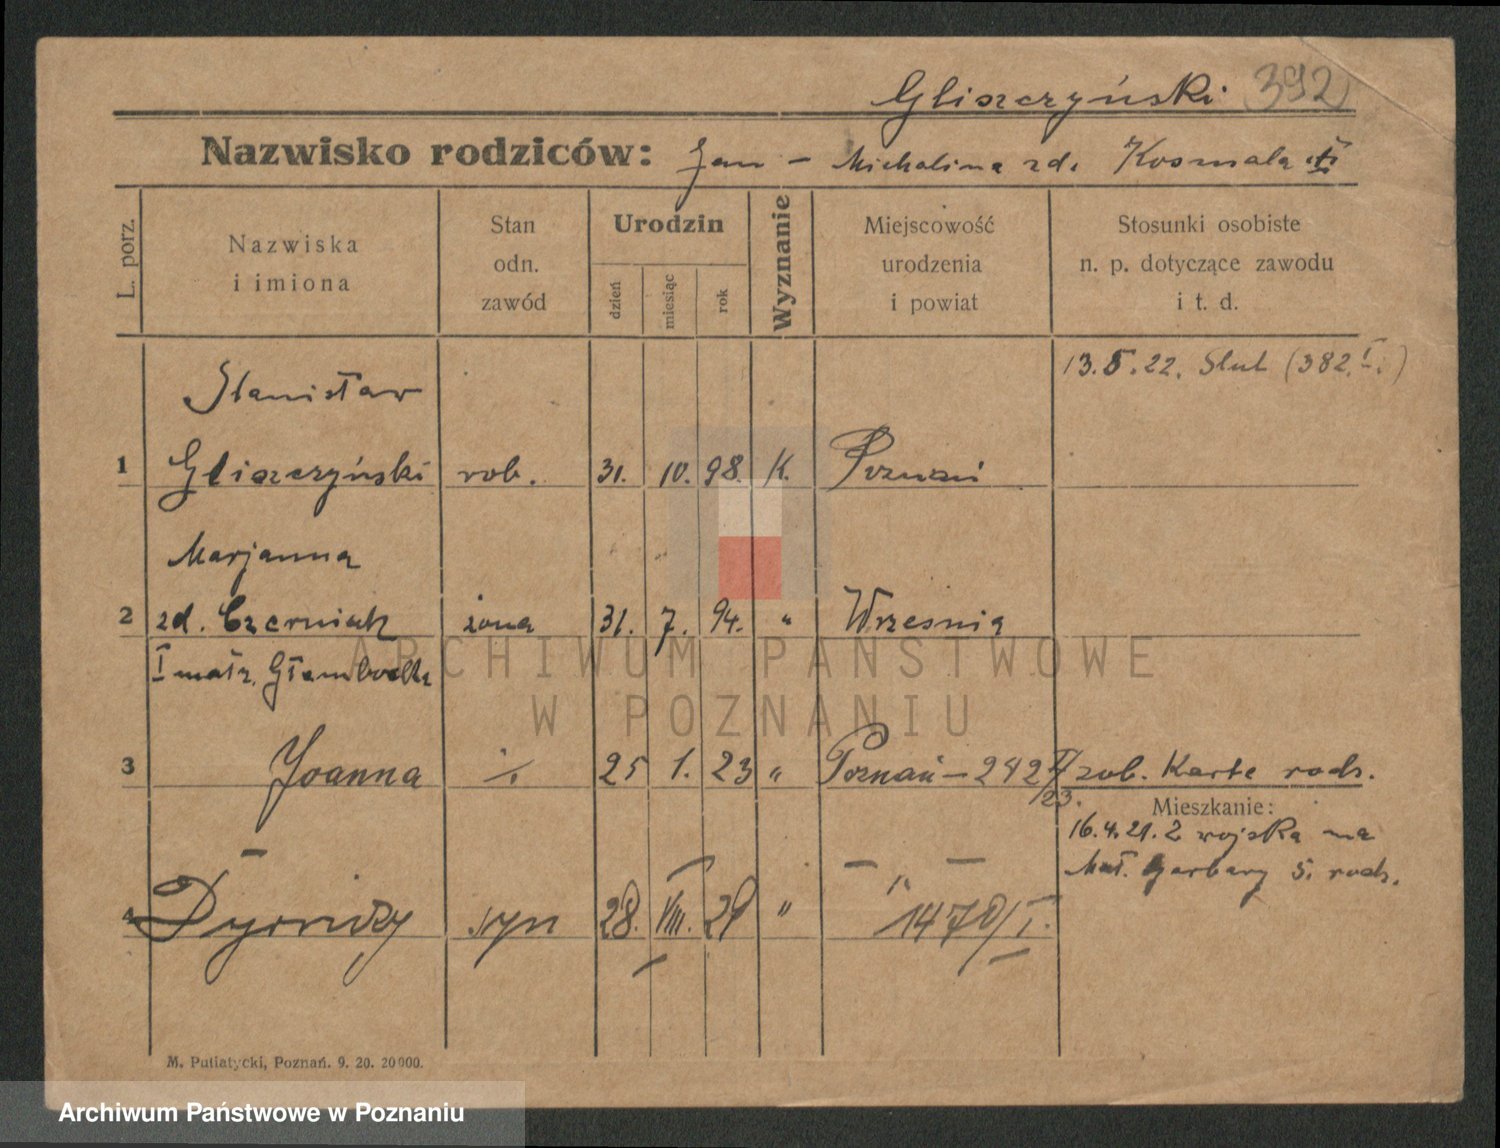 Gliszczyński 392
Nazwisko rodziców: Jan - Michalina zd. Kosmala
L. porz. Nazwiska i imiona Stan odn. zawód Urodzin dzień miesiąc rok Wyznanie Miejscowość urodzenia i powiat Stosunki osobiste n. p. dotyczące zawodu i t. d.
13.5.22. Slub (382.I.)
Stanisław
1 Gliszczyński rob. 31. 10. 98. K. Poznań
Marjanna
2 zd. Czerniak żona 31. 7. 94. " Wrzesnia
I małż.
3 Joanna ·/. 25 1. 23 " Poznań - 242 I/23. zob. Karte rodz.
Mieszkanie:
16.4.21. z wojska na
Mał. Garbary 5. rodz.
4 Dyonizy syn 28. VIII. 29 " 1470/I.
M. Putiatycki, Poznań. 9. 20. 20000.
ARCHIWUM PAŃSTWOWE
W POZNANIU
Archiwum Państwowe w Poznaniu